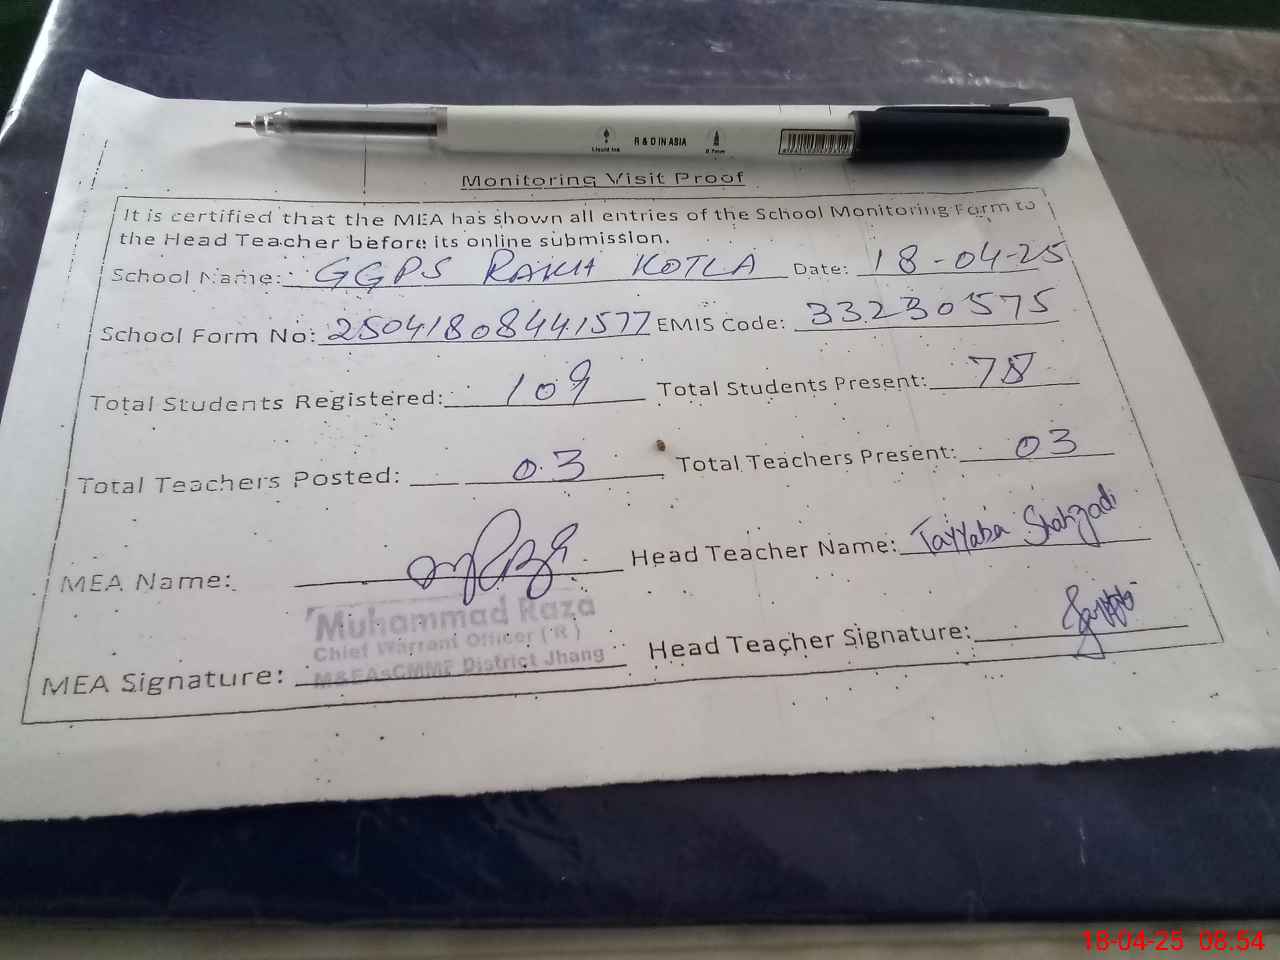 Liquid Ink R & D IN ASIA 0.7mm
Monitoring Visit Proof
It is certified that the MEA has shown all entries of the School Monitoring Form to
the Head Teacher before its online submission.
School Name: GGPS RAKH KOTLA Date: 18-04-25
School Form No: 25041808441577 EMIS Code: 33230575
Total Students Registered: 109 Total Students Present: 78
Total Teachers Posted: 03 Total Teachers Present: 03
MEA Name: Head Teacher Name: Tayyaba Shahzadi
Muhammad Raza
Chief Warrant Officer (R)
M&EAsCMMF District Jhang
MEA Signature: Head Teacher Signature:
18-04-25 08:54